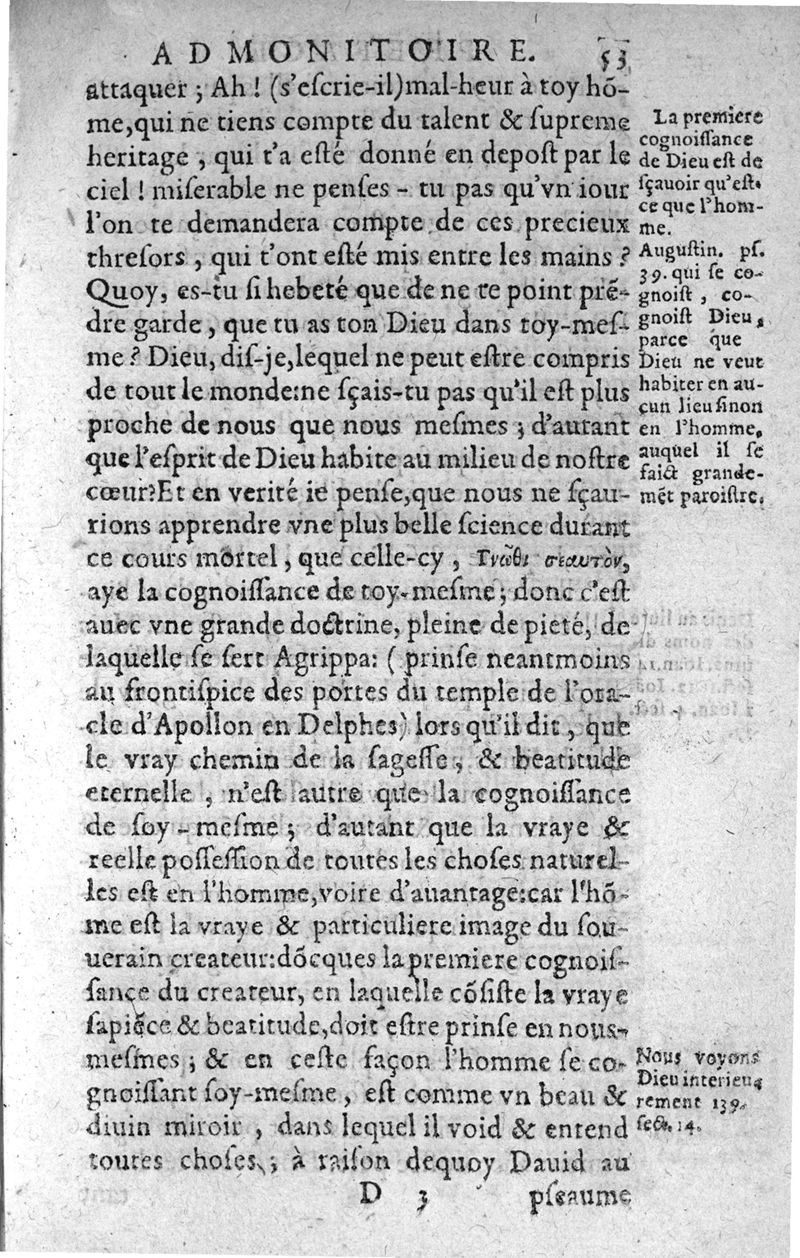 ADMONITOIRE. 53
attaquer ; Ah ! (s'eſcrie-il) mal-heur à toy hõ-
me, qui ne tiens compte du talent & ſupreme
heritage , qui t'a eſté donné en depoſt par le
ciel ! miſerable ne penſes - tu pas qu'vn iour
l'on te demandera compte de ces precieux
threſors , qui t'ont eſté mis entre les mains ?
Quoy, es-tu ſi hebeté que de ne te point prẽ-
dre garde , que tu as ton Dieu dans toy-meſ-
me ? Dieu, diſ-je, lequel ne peut eſtre compris
de tout le monde: ne ſçais-tu pas qu'il eſt plus
proche de nous que nous meſmes ; d'autant
que l'eſprit de Dieu habite au milieu de noſtre
cœur? Et en verité ie penſe, que nous ne ſçau-
rions apprendre vne plus belle ſcience durant
ce cours mortel, que celle-cy , Γνῶθι σεαυτὸν,
aye la cognoiſſance de toy-meſme ; donc c'eſt
auec vne grande doctrine, pleine de pieté, de
laquelle ſe ſert Agrippa: ( prinſe neantmoins
au frontiſpice des portes du temple de l'ora-
cle d'Apollon en Delphes) lors qu'il dit , que
le vray chemin de la ſageſſe , & beatitude
eternelle , n'eſt autre que la cognoiſſance
de ſoy - meſme ; d'autant que la vraye &
reelle poſſeſſion de toutes les choſes naturel-
les eſt en l'homme, voire d'auantage: car l'hõ-
me eſt la vraye & particuliere image du ſou-
uerain createur: dõcques la premiere cognoiſ-
ſance du createur, en laquelle cõſiſte la vraye
ſapiẽce & beatitude, doit eſtre prinſe en nous-
meſmes ; & en ceſte façon l'homme ſe co-
gnoiſſant ſoy-meſme , eſt comme vn beau &
diuin miroir , dans lequel il void & entend
toutes choſes ; à raiſon dequoy Dauid au
D 3 pſeaume
La premiere
cognoiſſance
de Dieu eſt de
ſçauoir qu'eſt-
ce que l'hom-
me.
Auguſtin. pſ.
39. qui ſe co-
gnoiſt , co-
gnoiſt Dieu,
parce que
Dieu ne veut
habiter en au-
cun lieu ſinon
en l'homme,
auquel il ſe
faict grande-
mẽt paroiſtre.
Nous voyons
Dieu interieu-
rement 139.
ſect. 14.